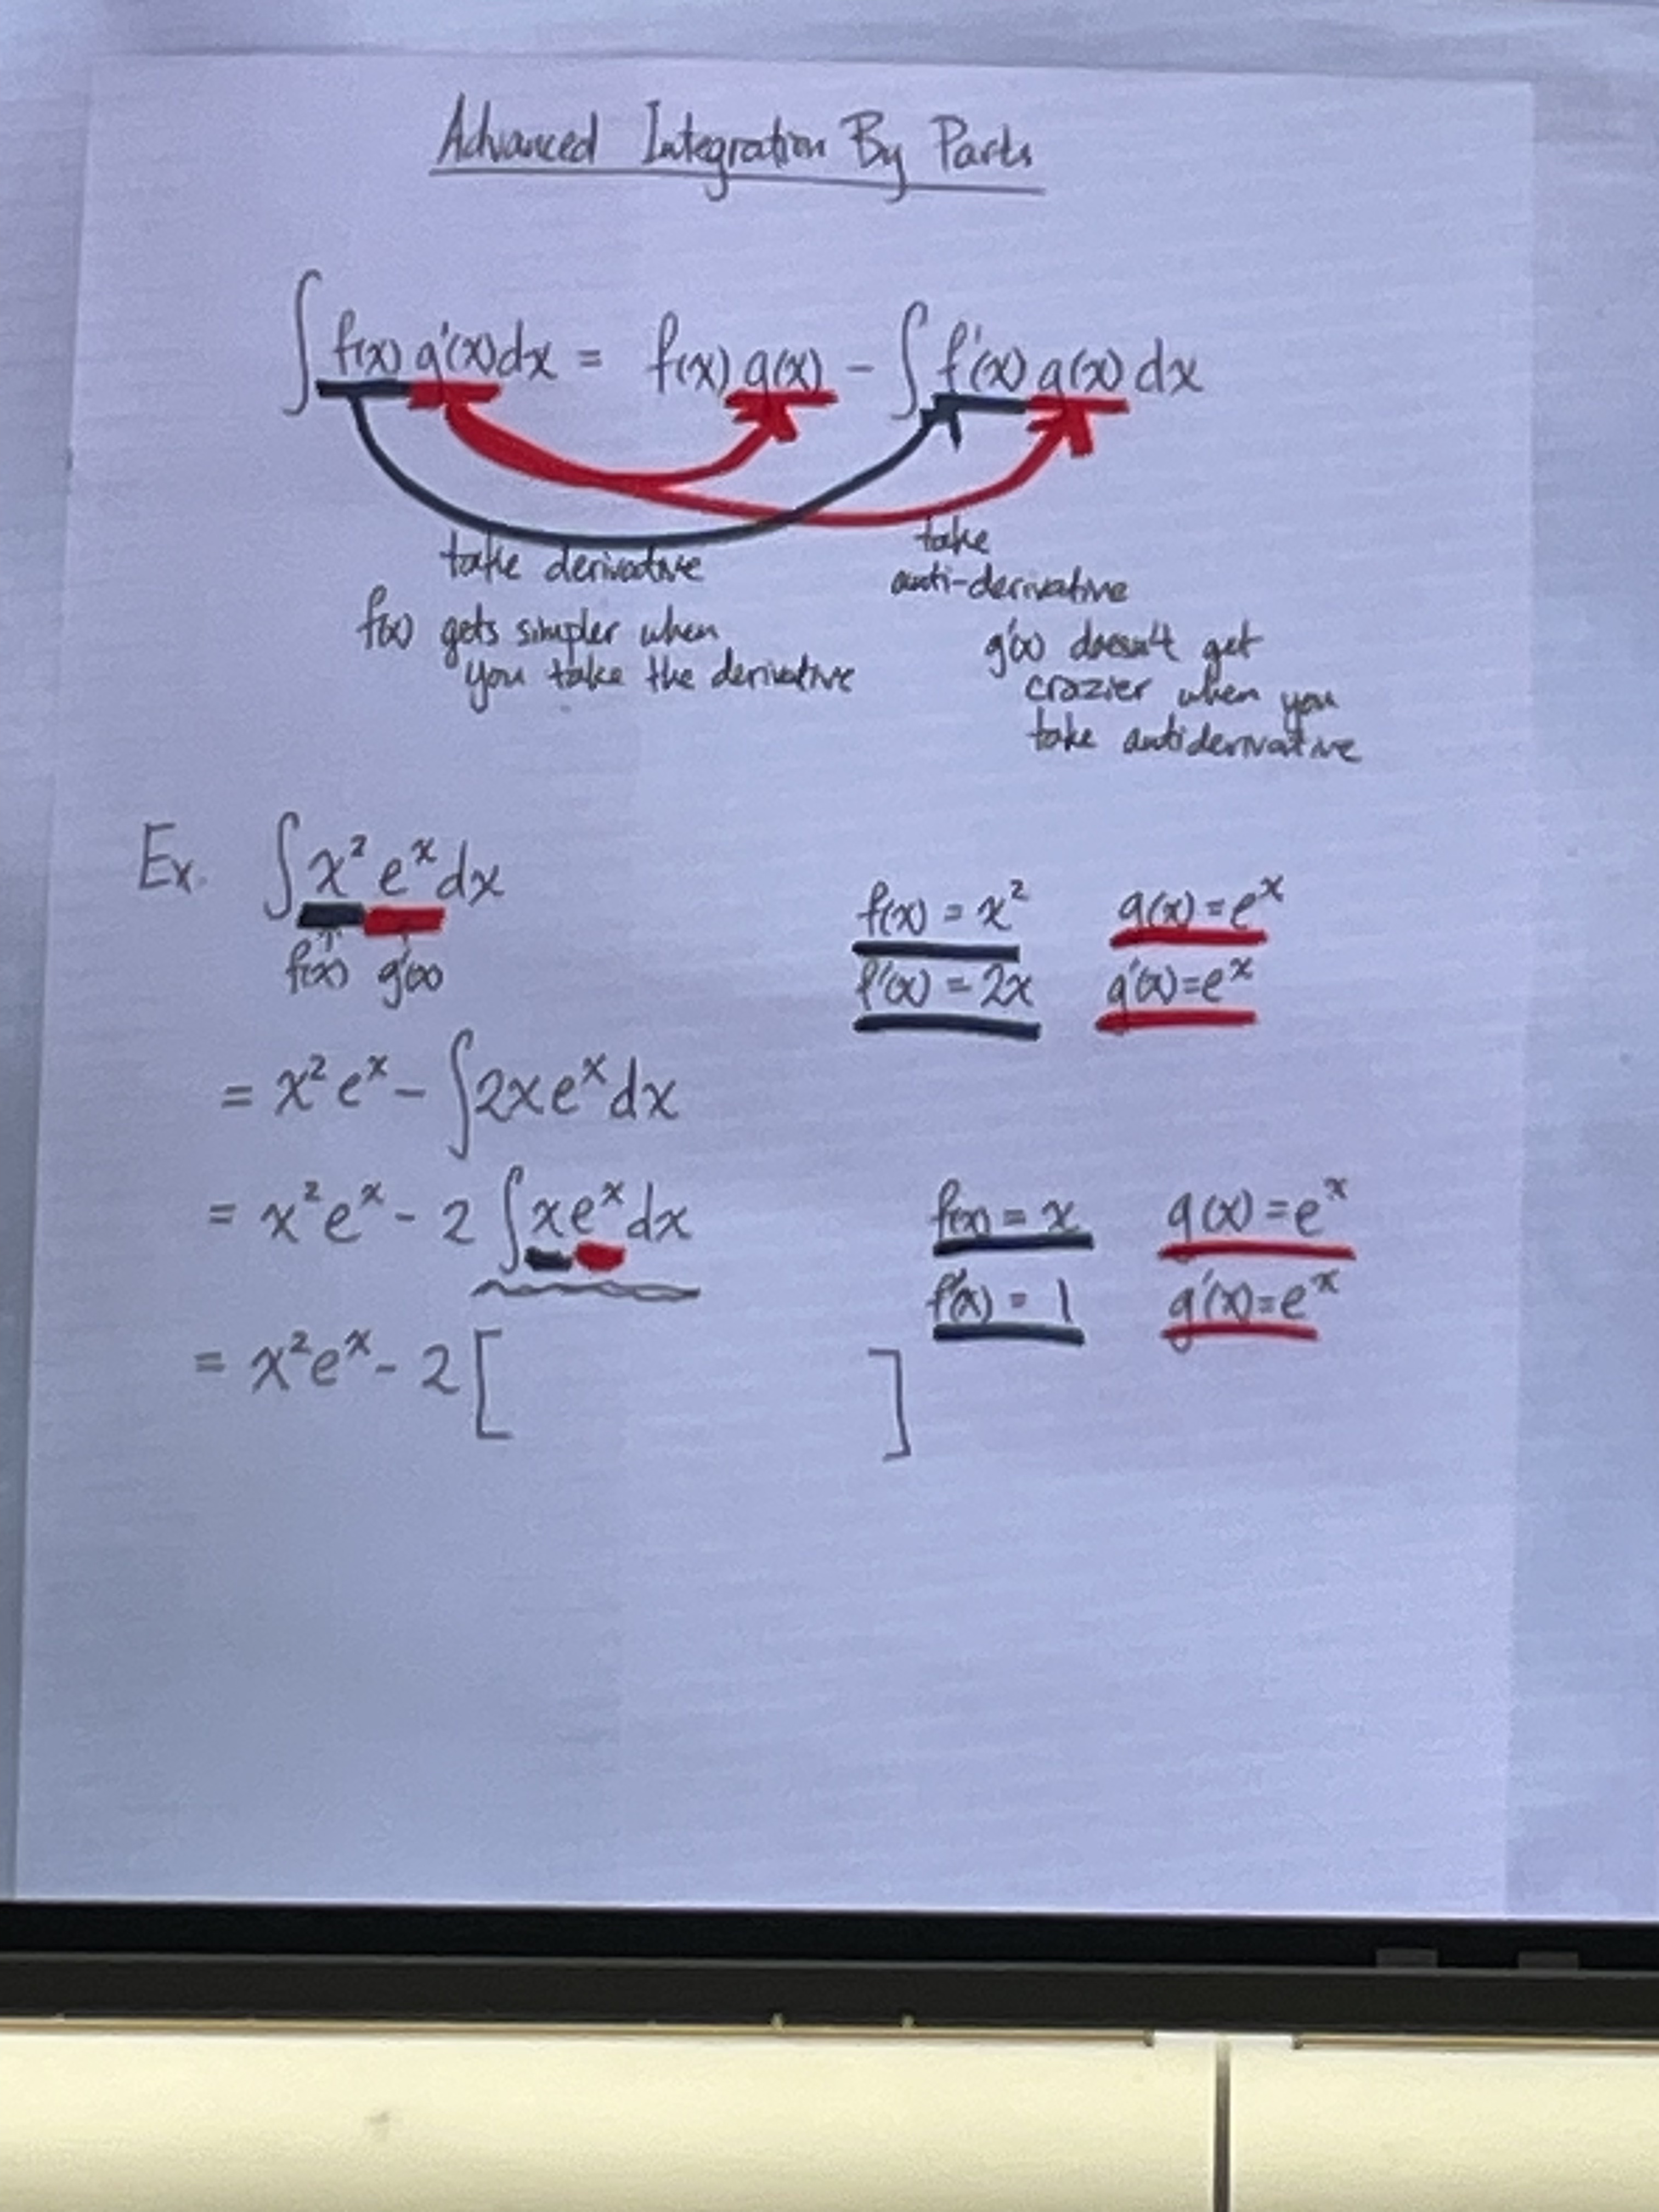 Advanced Integration By Parts
∫ f(x) g'(x) dx = f(x) g(x) - ∫ f'(x) g(x) dx
take derivative
take
anti-derivative
f(x) gets simpler when
you take the derivative
g'(x) doesn't get
crazier when you
take antiderivative
Ex. ∫ x² eˣ dx
f(x) g'(x)
f(x) = x² g(x) = eˣ
f'(x) = 2x g'(x) = eˣ
= x² eˣ - ∫ 2x eˣ dx
= x² eˣ - 2 ∫ x eˣ dx
f(x) = x g(x) = eˣ
f'(x) = 1 g'(x) = eˣ
= x² eˣ - 2 [ ]